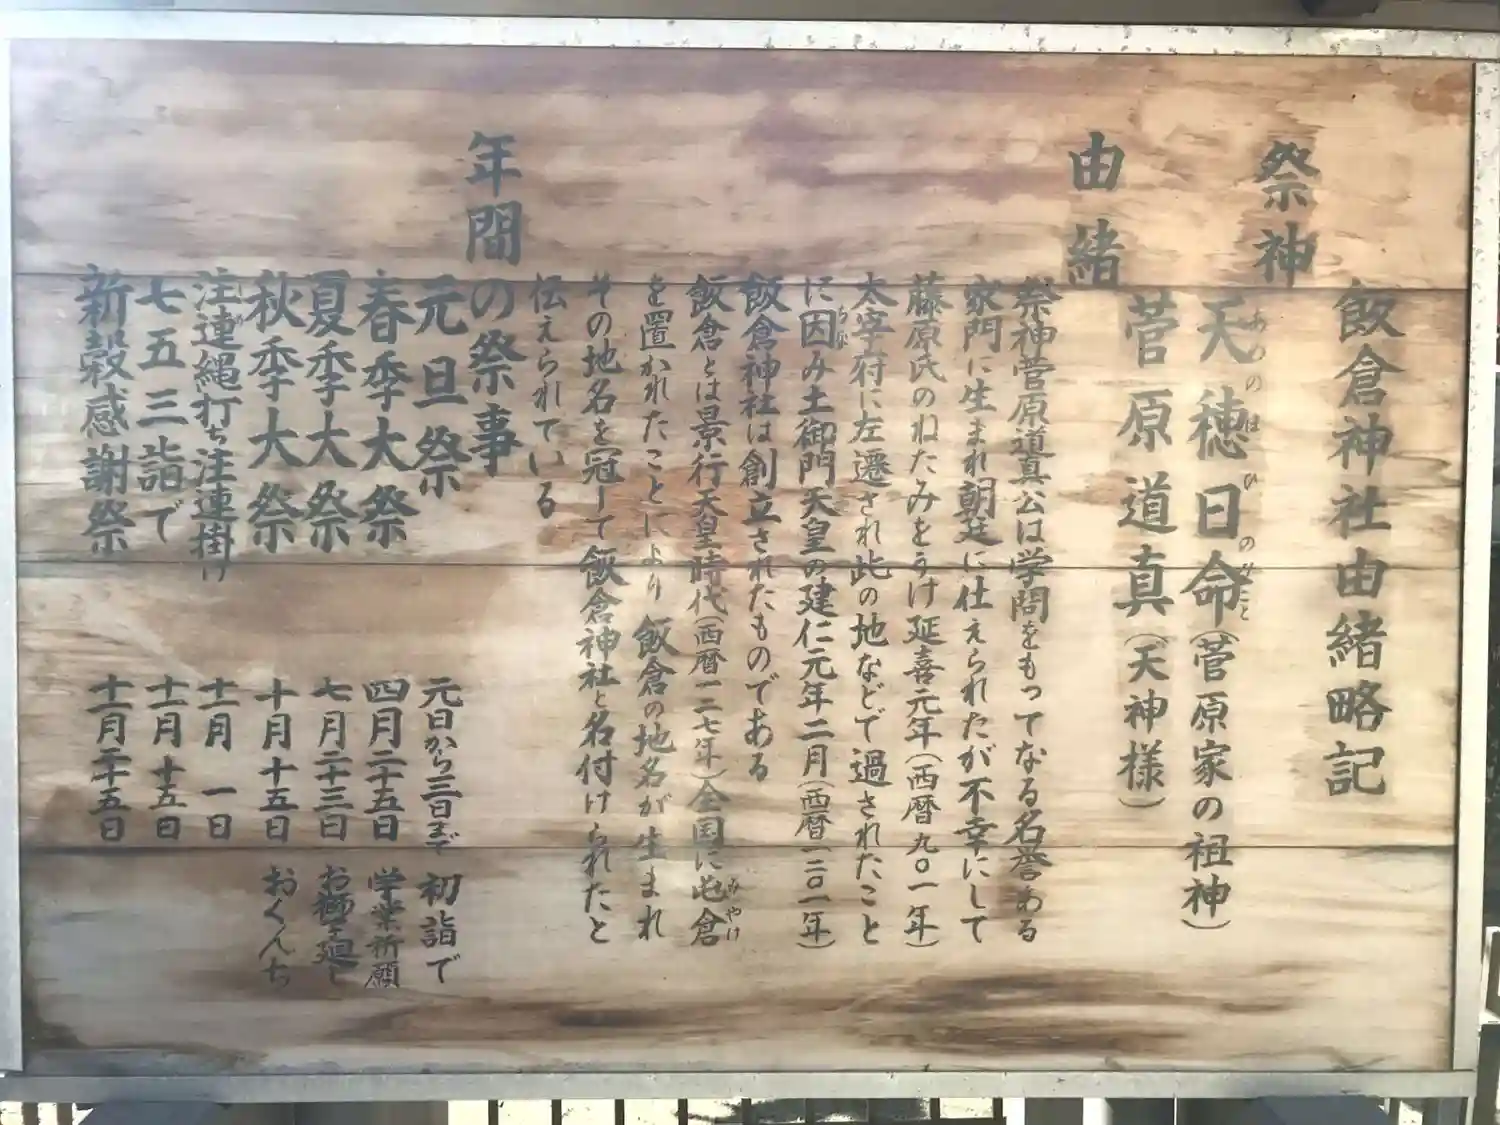 飯倉神社由緒略記
祭神
天穂日命(菅原家の祖神)
あめの ほ ひ のみこと
菅原道真(天神様)
由緒
祭神菅原道真公は学問をもってなる名誉ある
家門に生まれ朝廷に仕えられたが不幸にして
藤原氏のねたみをうけ延喜元年(西暦九〇一年)
太宰府に左遷され此の地などで過されたこと
に因み土御門天皇の建仁元年二月(西暦一二〇一年)
ちな
飯倉神社は創立されたものである
飯倉とは景行天皇時代(西暦一二七年)全国に屯倉
みやけ
を置かれたことにより飯倉の地名が生まれ
その地名を冠して飯倉神社と名付けられたと
伝えられている
年間の祭事
元旦祭 元日から三日まで 初詣で
春季大祭 四月二十五日 学業祈願
夏季大祭 七月二十三日 お獅子廻し
秋季大祭 十月十五日 おくんち
注連縄打ち注連掛け 十二月 一日
しめ
七五三詣で 十一月十五日
新穀感謝祭 十一月二十五日